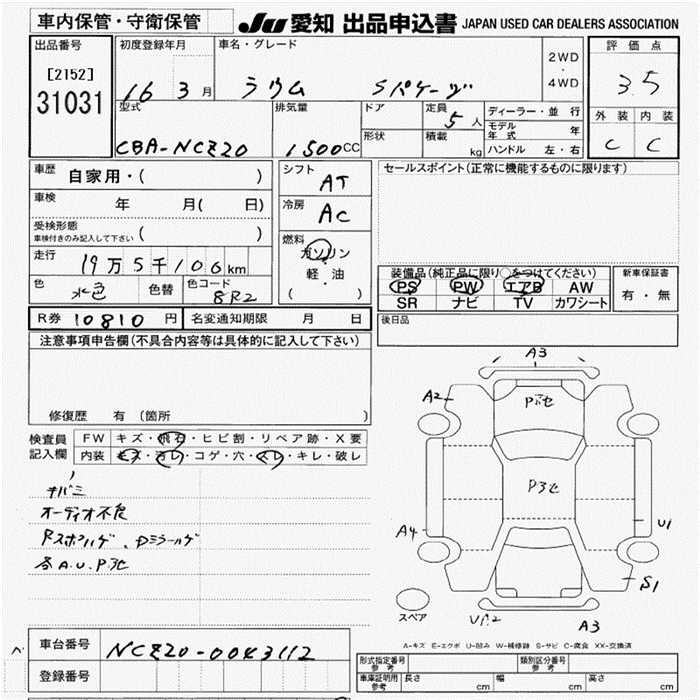 車内保管・守衛保管
JU 愛知 出品申込書 JAPAN USED CAR DEALERS ASSOCIATION
出品番号
[2152]
31031
初度登録年月
16 3 月
車名・グレード
ラウム Sパケージ
2WD
・
4WD
評価点
3.5
外装 内装
C C
型式
CBA-NCZ20
排気量
1500CC
ドア
形状
定員
5人
積載
kg
ディーラー・並行
モデル年式 年
ハンドル 左・右
車歴
自家用・( )
車検
年 月( 日)
受検形態
車検付きのみ記入して下さい ( )
走行
19万5千106km
色
水色
色替
色コード
8R2
シフト
AT
冷房
AC
燃料
ガソリン
・
軽・油
( )
セールスポイント(正常に機能するものに限ります)
装備品(純正品に限り○をつけてください)
PS PW エアB AW
SR ナビ TV カワシート
新車保証書
有・無
R券 10810 円 名変通知期限 月 日
後日品
注意事項申告欄(不具合内容等は具体的に記入して下さい)
修復歴 有 (箇所 )
検査員
記入欄
FW キズ・飛石・ヒビ割・リペア跡・X要
内装 キズ・ヨゴレ・コゲ・穴・スレ・キレ・破レ
キバミ
オーディオ不良
Rスポハゲ、Dミラーハゲ
各A.U.P3セ
A3
A2
P3セ
P3セ
A4
U1
S1
スペア
UA2
A3
A-キズ E-エクボ U-凹み W-補修跡 S-サビ C-腐食 XX-交換済
車台番号 NCZ20-0043112
登録番号
形式指定番号
参考
類別区分番号
参考
車庫証明用
参考
長さ cm 幅 cm 高さ cm